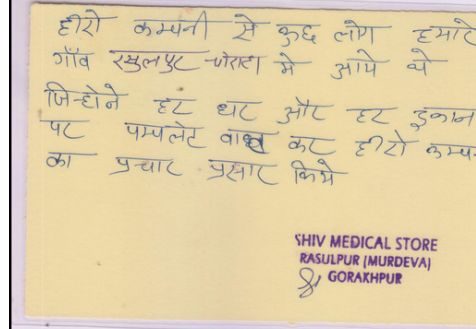 हीरो कम्पनी से कुछ लोग हमारे
गाँव रसुलपुर चौराहा मे आये थे
जिन्होने हर घर और हर दुकान
पर पम्पलेट कर हीरो कम्प
का प्रचार प्रसार किये
SHIV MEDICAL STORE
RASULPUR (MURDEVA)
GORAKHPUR